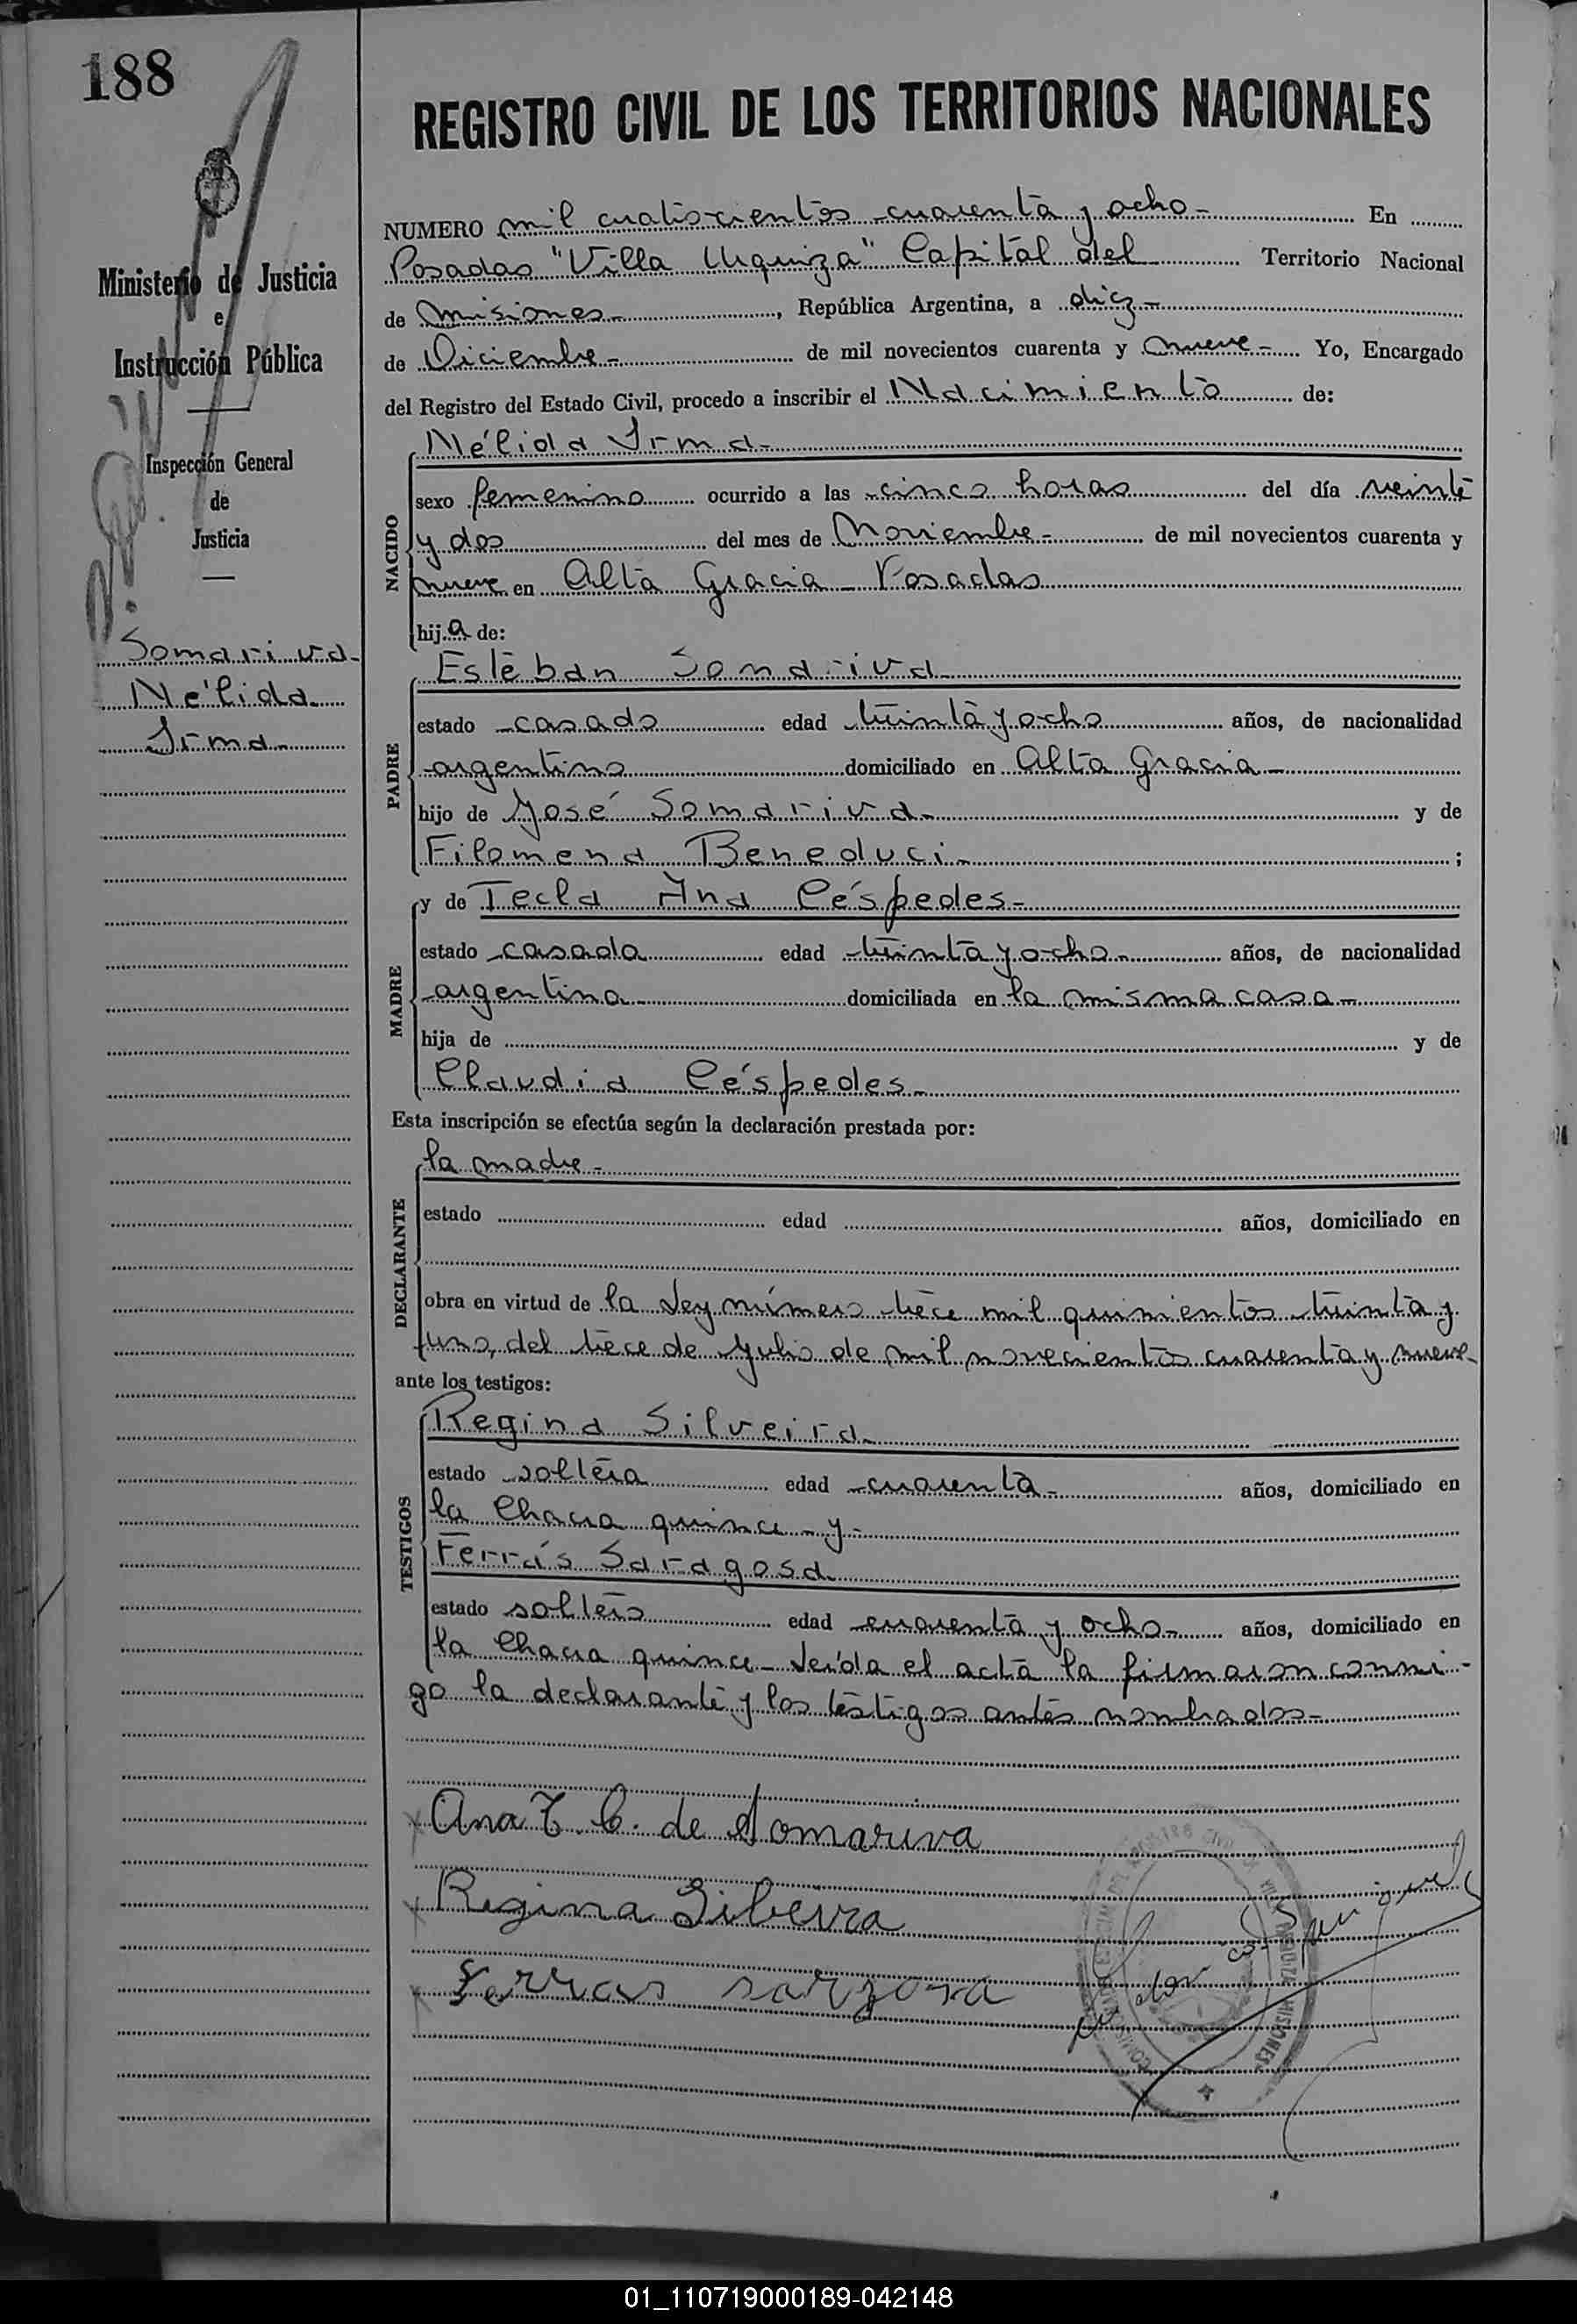 188
REGISTRO CIVIL DE LOS TERRITORIOS NACIONALES
Ministerio de Justicia
e
Instrucción Pública
Inspección General
de
Justicia
Somariva
Nélida
Irma
NUMERO mil cuatrocientos cuarenta y ocho En
Posadas "Villa Urquiza" Capital del Territorio Nacional
de Misiones, República Argentina, a diez
de Diciembre de mil novecientos cuarenta y nueve Yo, Encargado
del Registro del Estado Civil, procedo a inscribir el Nacimiento de:
NACIDO
Nélida Irma
sexo femenino ocurrido a las cinco horas del día veinte
y dos del mes de Noviembre de mil novecientos cuarenta y
nueve en Alta Gracia - Posadas
hija de:
PADRE
Esteban Somariva
estado casado edad treinta y ocho años, de nacionalidad
argentino domiciliado en Alta Gracia
hijo de José Somariva y de
Filomena Beneduci ;
MADRE
y de Tecla Ana Céspedes
estado casada edad treinta y ocho años, de nacionalidad
argentina domiciliada en la misma casa
hija de y de
Claudia Céspedes
Esta inscripción se efectúa según la declaración prestada por:
DECLARANTE
la madre
estado edad años, domiciliado en
obra en virtud de la Ley número trece mil quinientos treinta y
uno, del trece de Julio de mil novecientos cuarenta y nueve
ante los testigos:
TESTIGOS
Regina Silveira
estado soltera edad cuarenta años, domiciliado en
la Chacra quince y
Ferrás Saragosa
estado soltero edad cuarenta y ocho años, domiciliado en
la Chacra quince - Leída el acta la firmaron conmi-
go la declarante y los testigos antes nombrados
Ana T. C. de Somariva
Regina Silbeira
Ferras sarzosa
MISIONES
01_110719000189-042148